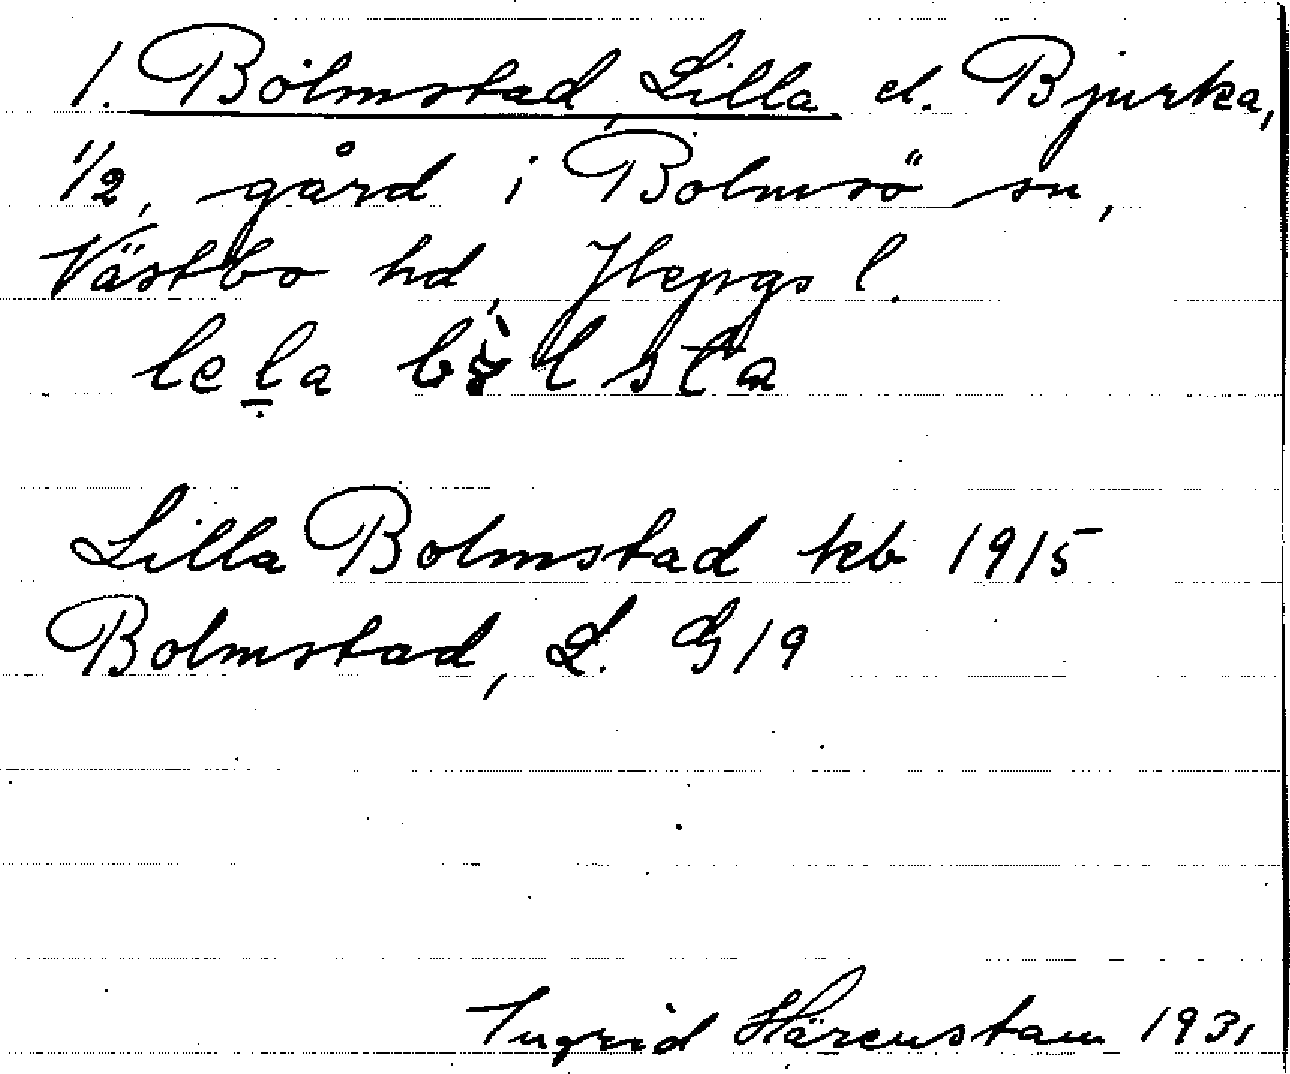 1. Bolmstad, Lilla el. Bjurka,
1/2, gård i Bolmsö sn,
Västbo hd, Jkpgs l.
lela
Lilla Bolmstad teb 1915
Bolmstad, L. G 19
Ingrid Härenstam 1931